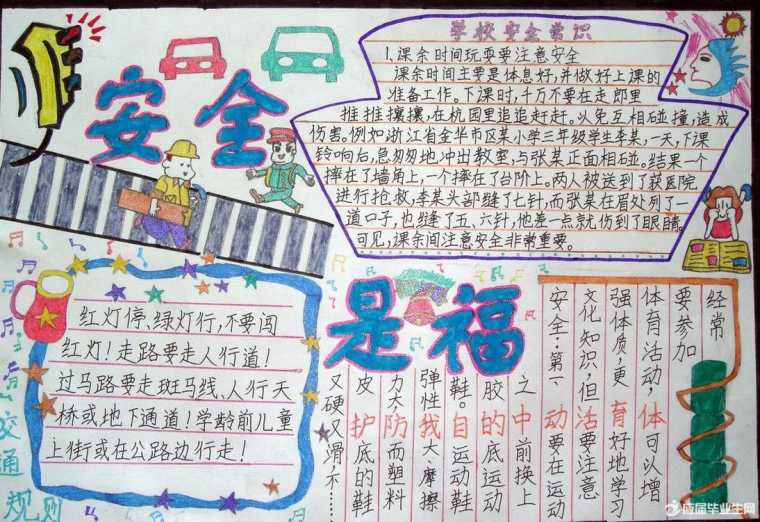 安全
是福
学校安全常识
1、课余时间玩耍要注意安全
课余时间主要是体息好,并做好上课的
准备工作。下课时,千万不要在走郎里
推推攘攘,在杭园里追追赶赶。以免互相碰撞,造成
伤害。例如浙江省金华市区某小学三年级学生李某,一天,下课
铃响后,急匆匆地冲出教室,与张某正面相碰。结果一个
摔在了墙角上,一个摔在了台阶上。两人被送到了获医院
进行抢救,李某头部缝了七针,而张某在眉处列了一
道口子,也缝了五、六针,他差一点就伤到了眼睛。
可见,课余间注意安全非常重要。
交通规则
红灯停、绿灯行,不要闯
红灯!走路要走人行道!
过马路要走斑马线、人行天
桥或地下通道!学龄前儿童
上街或在公路边行走!
体育活动中的自我防护
经常
要参加
体育活动,可以增
强体质,更好地学习
文化知识,但要注意
安全:第一、要在运动
之前换上
胶底运动
鞋。运动鞋
弹性大摩擦
力大而塑料
皮底的鞋
又硬又滑,不……
应届毕业生网